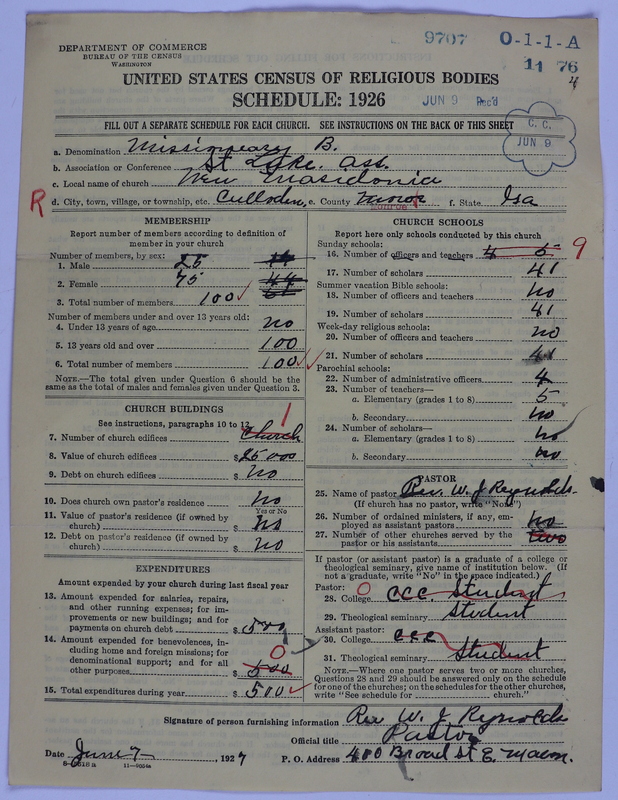 DEPARTMENT OF COMMERCE
BUREAU OF THE CENSUS
WASHINGTON
9707 O-1-1-A
11 76
4
UNITED STATES CENSUS OF RELIGIOUS BODIES
SCHEDULE: 1926
JUN 9 Rec'd
FILL OUT A SEPARATE SCHEDULE FOR EACH CHURCH. SEE INSTRUCTIONS ON THE BACK OF THIS SHEET
C. C.
JUN 9
a. Denomination Missionary B.
b. Association or Conference St Luke. Ass.
c. Local name of church New Masidonia
R d. City, town, village, or township, etc. Culloden, e. County Monroe f. State
MEMBERSHIP
Report number of members according to definition of
member in your church
Number of members, by sex:
1. Male 25
2. Female 75
3. Total number of members 100
Number of members under and over 13 years old:
4. Under 13 years of age no
5. 13 years old and over 100
6. Total number of members 100
NOTE.—The total given under Question 6 should be the
same as the total of males and females given under Question 3.
CHURCH BUILDINGS
See instructions, paragraphs 10 to 12 1
7. Number of church edifices Church
8. Value of church edifices $ 25000
9. Debt on church edifices $ No
10. Does church own pastor's residence No
Yes or No
11. Value of pastor's residence (if owned by
church) $ No
12. Debt on pastor's residence (if owned by
church) $ No
EXPENDITURES
Amount expended by your church during last fiscal year
13. Amount expended for salaries, repairs,
and other running expenses; for im-
provements or new buildings; and for
payments on church debt $ 500
14. Amount expended for benevolences, in-
cluding home and foreign missions; for
denominational support; and for all 0
other purposes $ 500
15. Total expenditures during year $ 500
CHURCH SCHOOLS
Report here only schools conducted by this church
Sunday schools:
16. Number of officers and teachers 4 5 9
17. Number of scholars 41
Summer vacation Bible schools:
18. Number of officers and teachers No
19. Number of scholars 41
Week-day religious schools:
20. Number of officers and teachers No
21. Number of scholars 41
Parochial schools:
22. Number of administrative officers 4
23. Number of teachers—
a. Elementary (grades 1 to 8) 5
b. Secondary no
24. Number of scholars—
a. Elementary (grades 1 to 8) no
b. Secondary no
PASTOR
25. Name of pastor Rev. W. J. Reynolds.
(If church has no pastor, write "None")
26. Number of ordained ministers, if any, em-
ployed as assistant pastors No
27. Number of other churches served by the
pastor or his assistants Two
If pastor (or assistant pastor) is a graduate of a college or
theological seminary, give name of institution below. (If
not a graduate, write "No" in the space indicated.)
Pastor: 0
28. College CCC. Student
29. Theological seminary Student
Assistant pastor:
30. College CCC
31. Theological seminary Student
NOTE.—Where one pastor serves two or more churches,
Questions 28 and 29 should be answered only on the schedule
for one of the churches; on the schedules for the other churches,
write "See schedule for church."
Signature of person furnishing information Rev W. J Reynolds
Official title Pastor
Date June 7, 1927 P. O. Address 400 Broad st E. Macon.
11—9054a